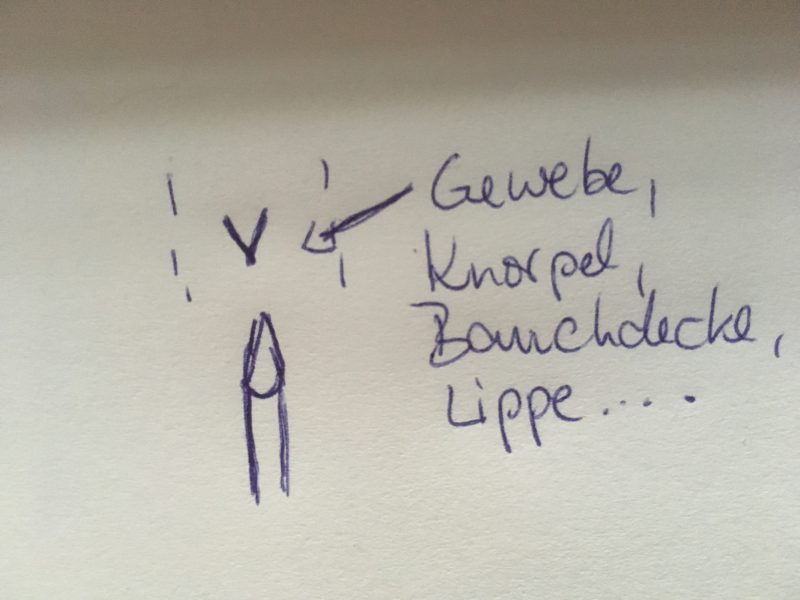 Gewebe,
Knorpel,
Bauchdecke,
Lippe.....